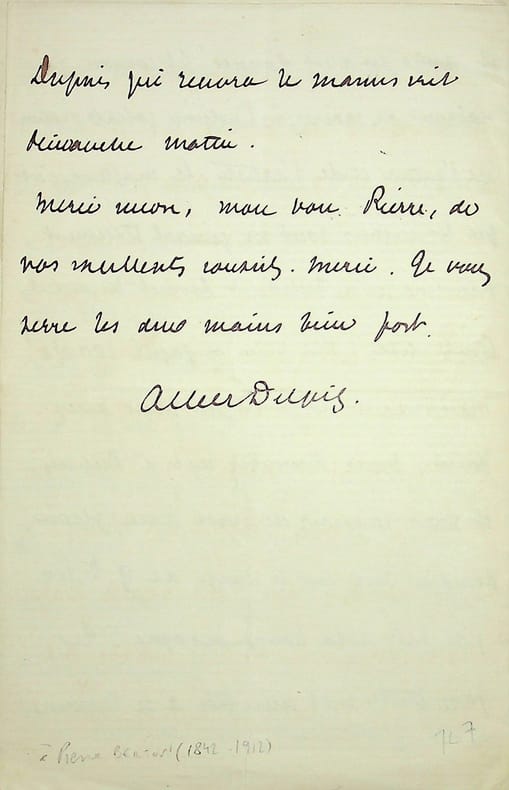 Dupuis qui recevra le manuscrit
Dimanche matin.
Merci encore, mon bon Pierre, de
vos excellents conseils. Merci. Je vous
serre les deux mains bien fort.
Albert Delpit.
à Pierre Berton (1842-1912)